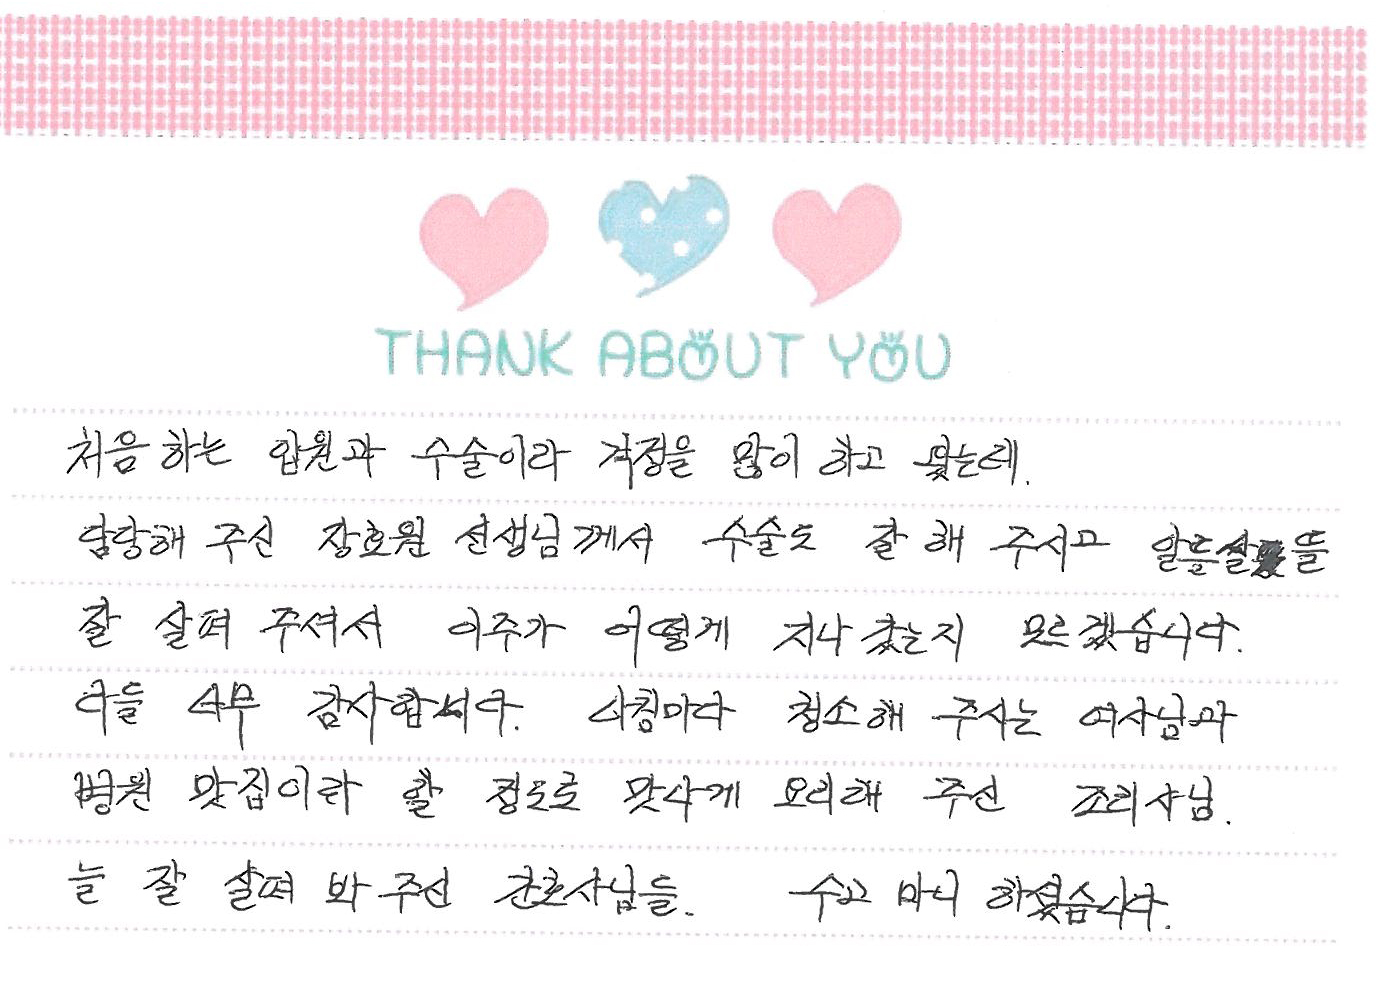 THANK ABOUT YOU
처음 하는 입원과 수술이라 걱정을 많이 하고 왔는데.
담당해 주신 장호원 선생님께서 수술도 잘 해 주시고 알뜰살뜰
잘 살펴 주셔서 이주가 어떻게 지나 갔는지 모르겠습니다.
다들 너무 감사합니다. 아침마다 청소해 주시는 여사님과
병원 맛집이라 할 정도로 맛나게 요리해 주신 조리사님.
늘 잘 살펴 봐 주신 간호사님들. 수고 마니 하셨습니다.